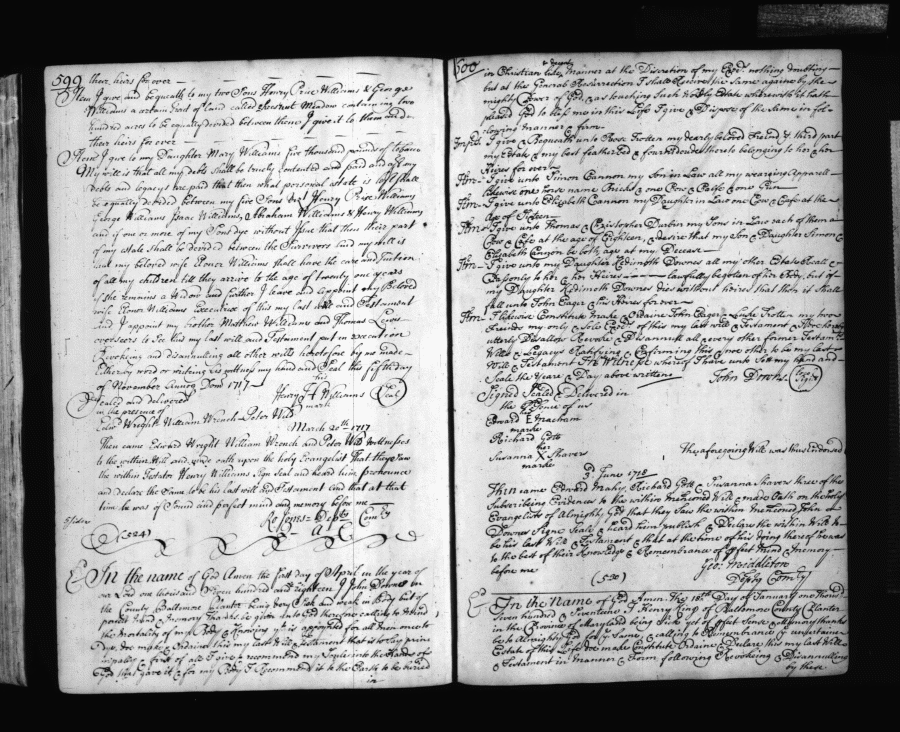 599 their heirs for ever
Item I give and bequeath to my two Sons Henry Price Williams & George
Williams a certain tract of land called Meadow containing two
hundred acres to be equally devided between them I give it to them and
their heirs for ever
Item I give to my Daughter Mary Williams five thousand pounds of tobacco
My will is that all my debts shall be truely contented and paid and after my
debts and legacys are paid that then what personal estate is left shall
be equally devided between my five Sons Henry Price Williams
George Williams Isaac Williams Abraham Williams & Henry Williams
and if one or more of my Sons dye without Issue that then their part
of my estate shall be devided between the Survivors and my will is
that my beloved wife Williams shall have the care and tuition
of all my children till they arrive to the age of twenty one years
if she remains a Widow and further I leave and appoint my Beloved
wife Williams Executrix of this my last will and Testament
and I appoint my brother Matthew Williams and Thomas Lewis
overseers to See this my last will and Testament put in execution
Revoking and disannulling all other wills heretofore by me made
Either by word or writing as wittness my hand and Seal this fifth day
of November Annoq Dom 1717
Sealed and delivered Henry H Williams Seal
in the presence of mark
Edwd Wright William Wrench Peter Wild
March 20th 1717
Then came Edward Wright William Wrench and Peter Wild wittnesses
to the within Will and made oath upon the holy Evangelist That they Saw
the within Testator Henry Williams Sign Seal and heard him pronounce
and declare the Same to be his last will and Testament and that at that
time he was of Sound and perfect mind and memory before me
5 sides
Depty Comry
A
(524)
In the name of God Amen the first day of April in the year of
our Lord one thousand Seven hundred and eighteen I John Downes in
the County Baltimore Planter being very Sick and weak in Body but of
perfect mind & memory thanks be given unto God therefore calling to Mind
the Mortality of my Body & knowing it is appointed for all men once to
Dye do make & Ordaine this my last Will & Testament that is to Say prin
cipally & first of all I give & recommend my Soule into the Hands of
God that gave it & for my Body I Recommend it to the Earth to be buried
in
600
in Christian like & Decent manner at the Discretion of my Exrs nothing doubting
but at the General Resurrection I shall Receive the Same againe by the
mighty Power of God & as touching Such Wordly Estate wherewith it hath
pleased God to bless me in this Life I give & Dispose of the Same in fol
lowing manner & form
Imps. I give & Bequeath unto Rose Trotten my Dearly beloved Freind the third part
my Estate & my best feather bed & furniture thereto belonging to her & her
Heires for ever
Itm. I give unto Simon Cannon my Son in Law all my wearing Apparell
likewise one horse name Prick & one Cow & Calfe & one Gun
Itm. I give unto Elizabeth Cannon my Daughter in Law one Cow & Calfe at the
Age of Sixteen
Itm. I give unto Thomas & Christopher Durbin my Sons in Law each of them a
Cow & Cafe at the age of Eighteen, & desire that my Son & Daughter Simon &
Elizabeth Canyon be both age at my Decease
Itm. I give unto my Daughter Kedimoth Downes all my other Estate Reall &
Personly to her & her Heires lawfully begotten of her Body, but if
my Daughter Kedimoth Downes dies without heires that then it shall
fall unto John Eager & his Heires for ever
Itm. I likewise Constitute make & Ordaine John Eager & Luke Trotten my two
Freinds my only & Sole Exrs of this my last will & Testament & I do hereby
utterly Disallow Revoke & Disannull all & every other former Testam
Wills & Legacys Ratifying & Confirming this & noe other to be my last
Will & Testament In Witness whereof I have unto Set my hand and
Seale the Yeare & Day above written John Downs
Signed Sealed & Delivered in
the Psence of us
his
Edward E
marke
Richard Gott
her
Susanna X Shaver
marke
The aforegoing Will was thus Endorsed
June 1718
Then came Edward Mahy, Richard Gott & Susanna Shaver three of the
Subscribing Evidences to the within mentioned Will & made Oath on the holy
Evangelists of Almighty God that they Saw the within mentioned John
Downes Signe Seale & heard him publish & Declare the within Will to
be his last Will & Testament & that at the time of his doing thereof he was
to the best of their knowledge & Remembrance of pfect mind & memory
before me Geo: Middleton
(530) Depty Comry
In the Name of God Amen. The 18th Day of January one thousd
Seven hundred & Seventeene I Henry King of Baltemore County Planter
in the Province of Maryland being Sick yet of pfect Sense & Memory thanks
be to Almighty God for ye Same, & calling to Remembrance ye uncertaine
Estate of this Life doe make Constitute Ordaine & Declare this my last Will
& Testament in Manner & Form following Revokeing & Disannulling
by these